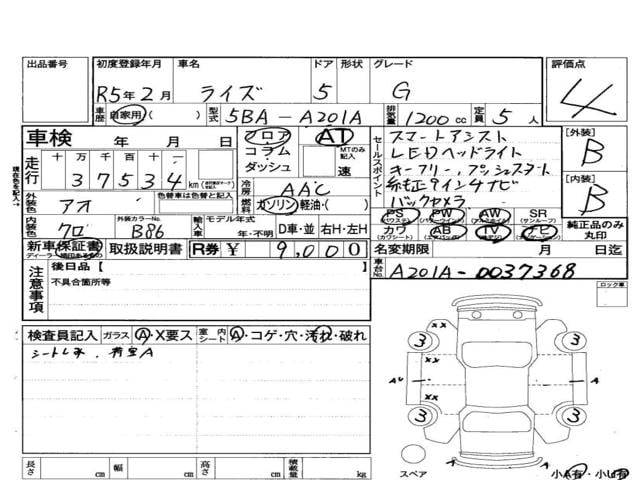 出品番号 初度登録年月 車名 ドア 形状 グレード 評価点
R5年2月 ライズ 5 G 4
車歴 自家用・( ) 型式 5BA-A201A 排気量 1200cc 定員 5人
車検 年 月 日 フロア AT
コラム MTのみ記入
ダッシュ 速
走行 十 万 千 百 十
3 7 5 3 4 km
冷房 AAC
外装色 アオ 色替車は色替と記入 燃料 ガソリン・軽油・( )
内装色 クロ 外装カラーNo. B86 輸入車 モデル年式 年・不明 D車・並 右H・左H
セールスポイント
スマートアシスト
LEDヘッドライト
オートフリー,プッシュスタート
純正9インチナビ
バックカメラ
[外装] B
[内装] B
PS PW AW SR
(パワステ) (パワーウインド) (アルミホイル) (サンルーフ)
カワ AB TV ナビ
(カワシート) (エアバッグ) (テレビ) (ナビゲーション)
純正品のみ丸印
新車保証書 取扱説明書 R券 ¥ 9,000
名変期限 月 日迄
車台No. A201A-0037368
注意事項 後日品【 】
不具合箇所等
ロック車
検査員記入 ガラス A・X要ス 室内シート A・コゲ・穴・汚れ・破れ
シートしみ、荷室A
3 XX 3
AU XX A
3 3
スペア
小A有・小U有
長さ cm 幅 cm 高さ cm 積載量 kg
現在色を記入→